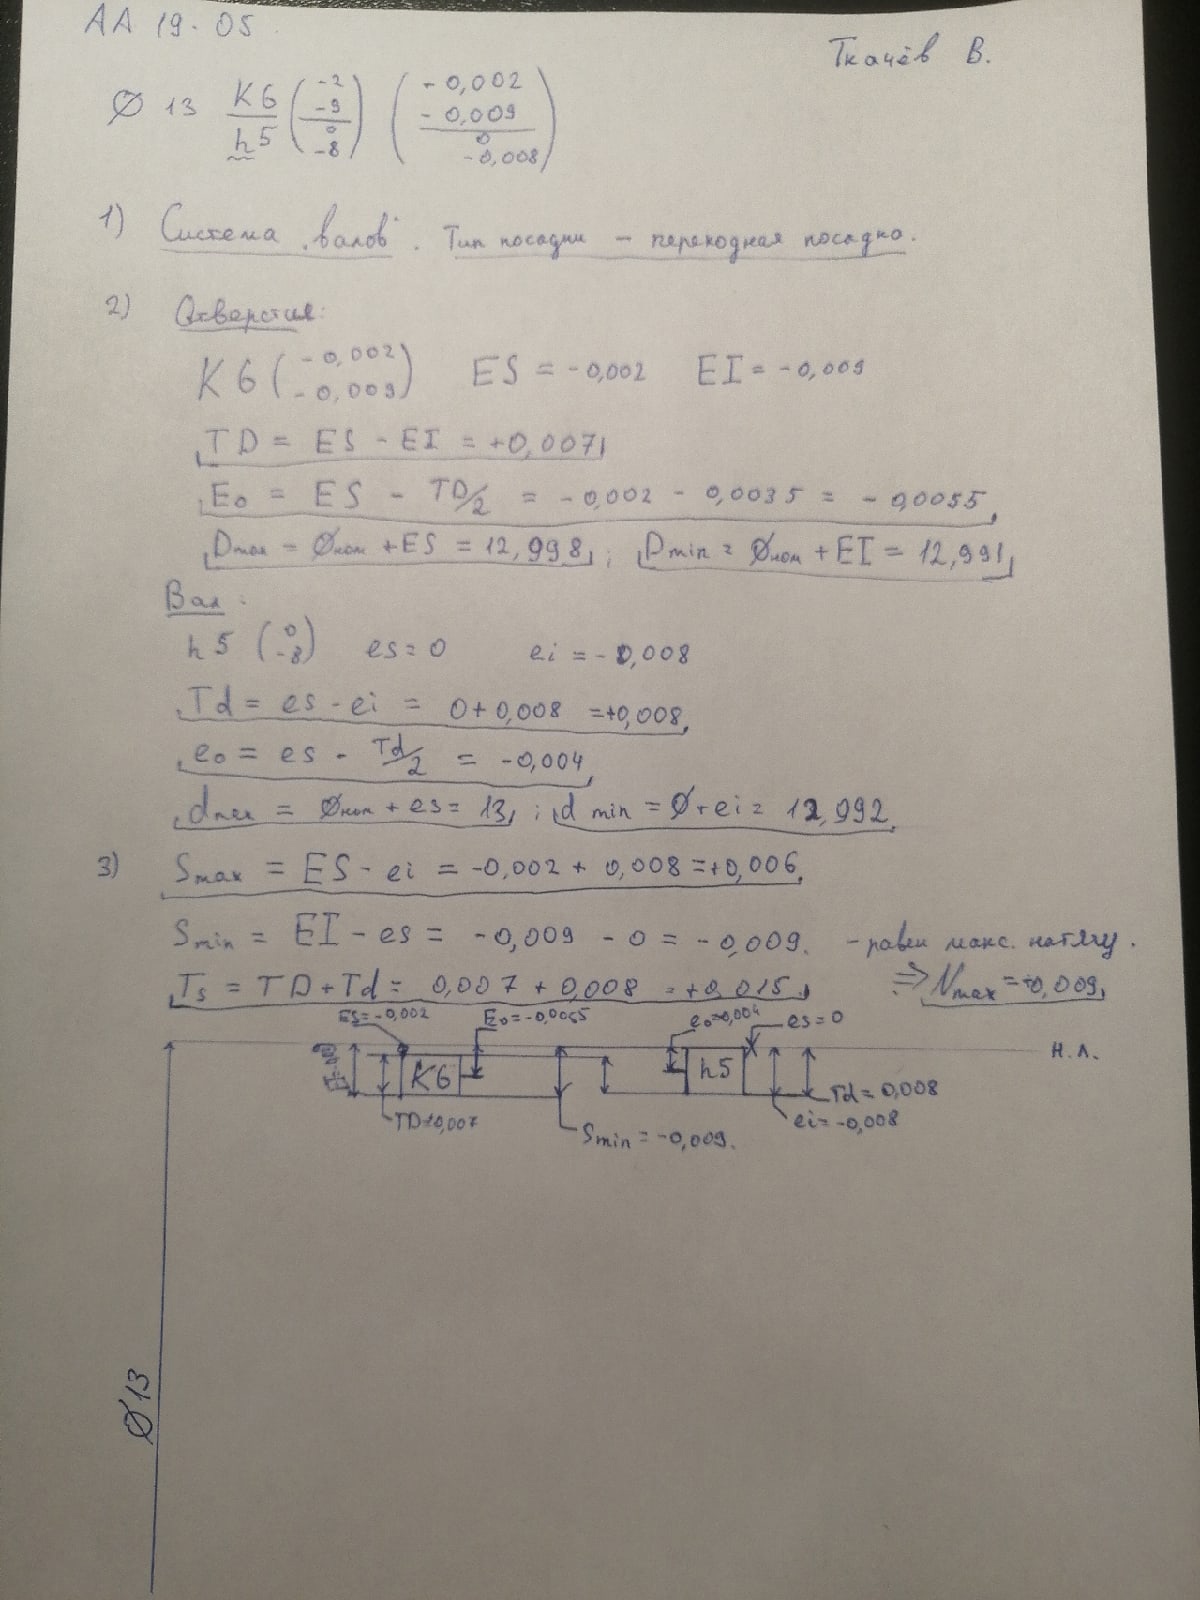 АА 19-05
Ткачёв В.
Ø 13 K6/h5 (-2 -9 / 0 -8) (-0,002 -0,009 / 0 -0,008)
1) Система „валов". Тип посадки - переходная посадка.
2) Отверстие:
K6 (-0,002 -0,009) ES = -0,002 EI = -0,009
TD = ES - EI = +0,007
E₀ = ES - TD/2 = -0,002 - 0,0035 = -0,0055
Dmax = Øном + ES = 12,998 ; Dmin = Øном + EI = 12,991
Вал:
h5 (0 -8) es = 0 ei = -0,008
Td = es - ei = 0 + 0,008 = +0,008
e₀ = es - Td/2 = -0,004
dmax = Øном + es = 13 ; d min = Ø + ei = 12,992
3) Smax = ES - ei = -0,002 + 0,008 = +0,006
Smin = EI - es = -0,009 - 0 = -0,009. - равен макс. натягу.
Ts = TD + Td = 0,007 + 0,008 = +0,015 ⇒ Nmax = +0,009
ES = -0,002 E₀ = -0,0055 e₀ = -0,004 es = 0
K6 h5 н.л.
TD = 0,007 Td = 0,008
Smin = -0,009. ei = -0,008
Ø 13